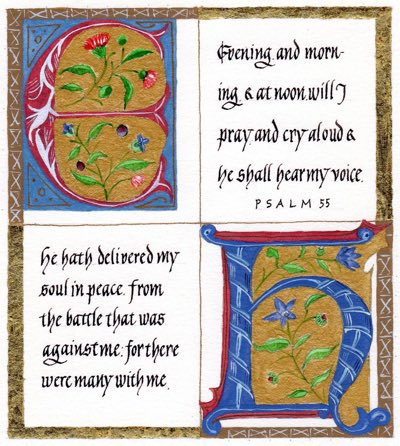 E
Evening, and morn-
ing, & at noon, will I
pray, and cry aloud &
he shall hear my voice.
PSALM 55
he hath delivered my
soul in peace from
the battle that was
against me: for there
were many with me.
h